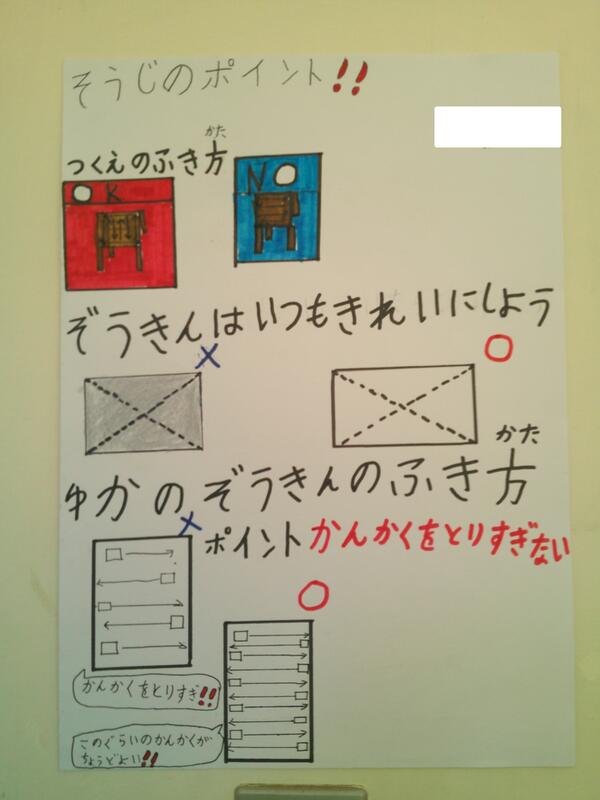 そうじのポイント!!
つくえのふき方
かた
OK
NO
ぞうきんはいつもきれいにしよう
×
○
ゆかのぞうきんのふき方
かた
×
ポイントかんかくをとりすぎない
○
かんかくをとりすぎ!!
このぐらいのかんかくが
ちょうどよい!!